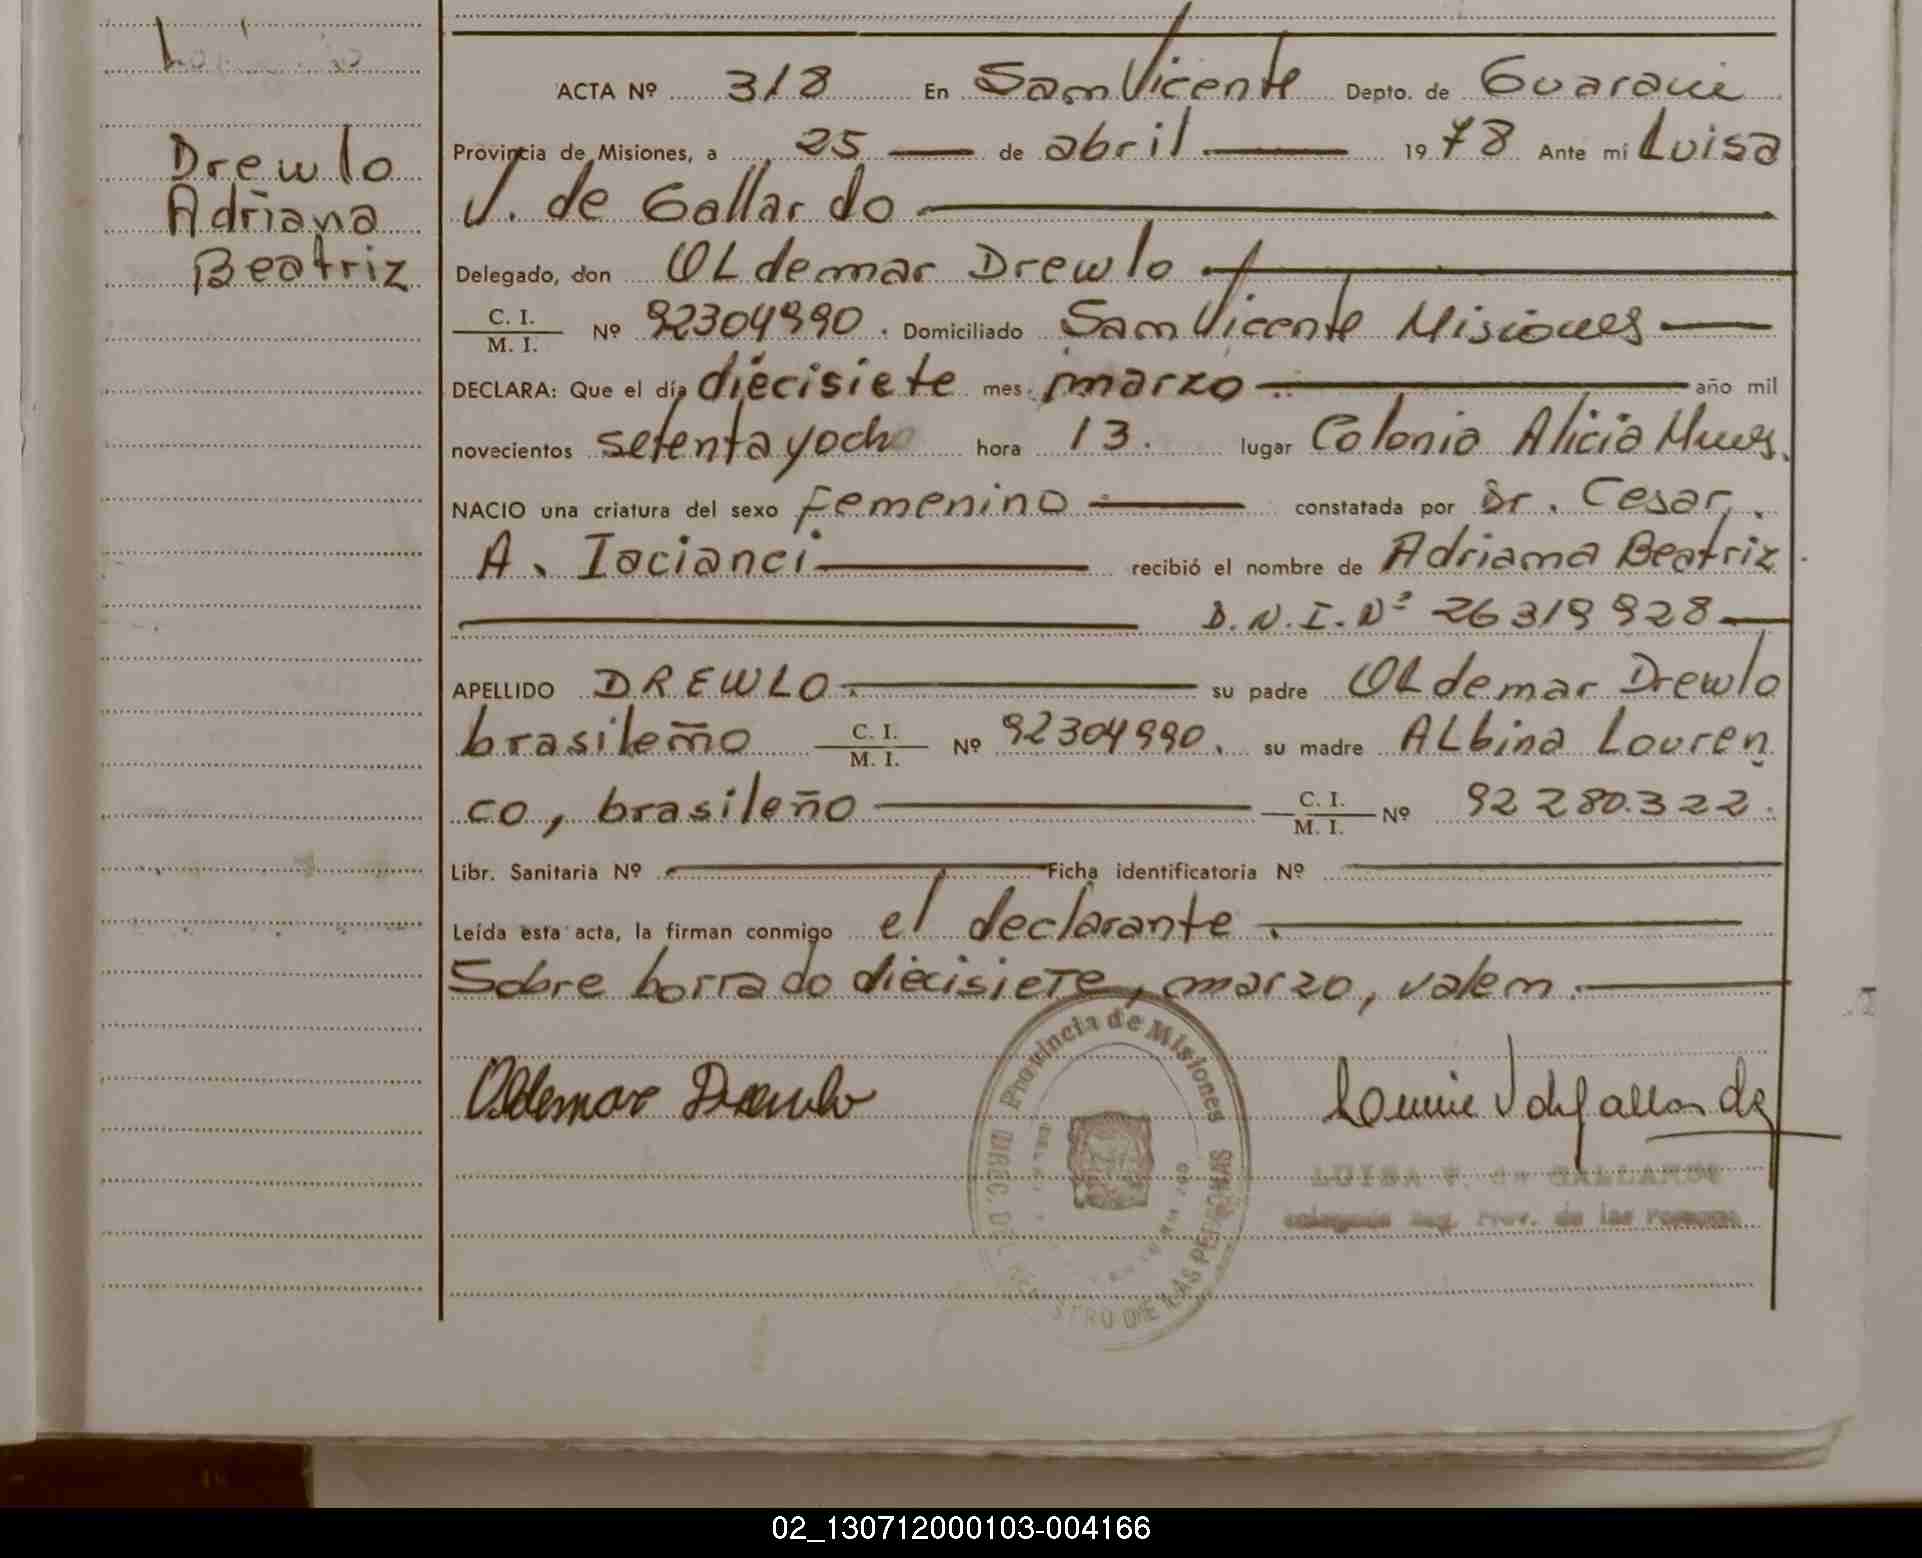 Drewlo
Adriana
Beatriz
ACTA Nº 318 En San Vicente Depto. de Guarani
Provincia de Misiones, a 25 de abril 1978 Ante mí Luisa
V. de Gallardo
Delegado, don OLdemar Drewlo
C. I. / M. I. Nº 92304990. Domiciliado San Vicente Misiones
DECLARA: Que el día diecisiete mes marzo año mil
novecientos setenta y ocho hora 13. lugar Colonia Alicia Mnes.
NACIO una criatura del sexo femenino constatada por Dr. Cesar
A. Iacianci recibió el nombre de Adriana Beatriz
D.N.I. Nº 26319928
APELLIDO DREWLO su padre OLdemar Drewlo
brasileño C. I. / M. I. Nº 92304990. su madre ALbina Louren
co, brasileño C. I. / M. I. Nº 92280.322.
Libr. Sanitaria Nº Ficha identificatoria Nº
Leída esta acta, la firman conmigo el declarante.
Sobre borrado diecisiete, marzo, valen.
Oldemar Drewlo
Provincia de Misiones
DE LAS PERSONAS
LUISA V. de GALLARDO
Delegado Reg. Prov. de las Personas
02_130712000103-004166